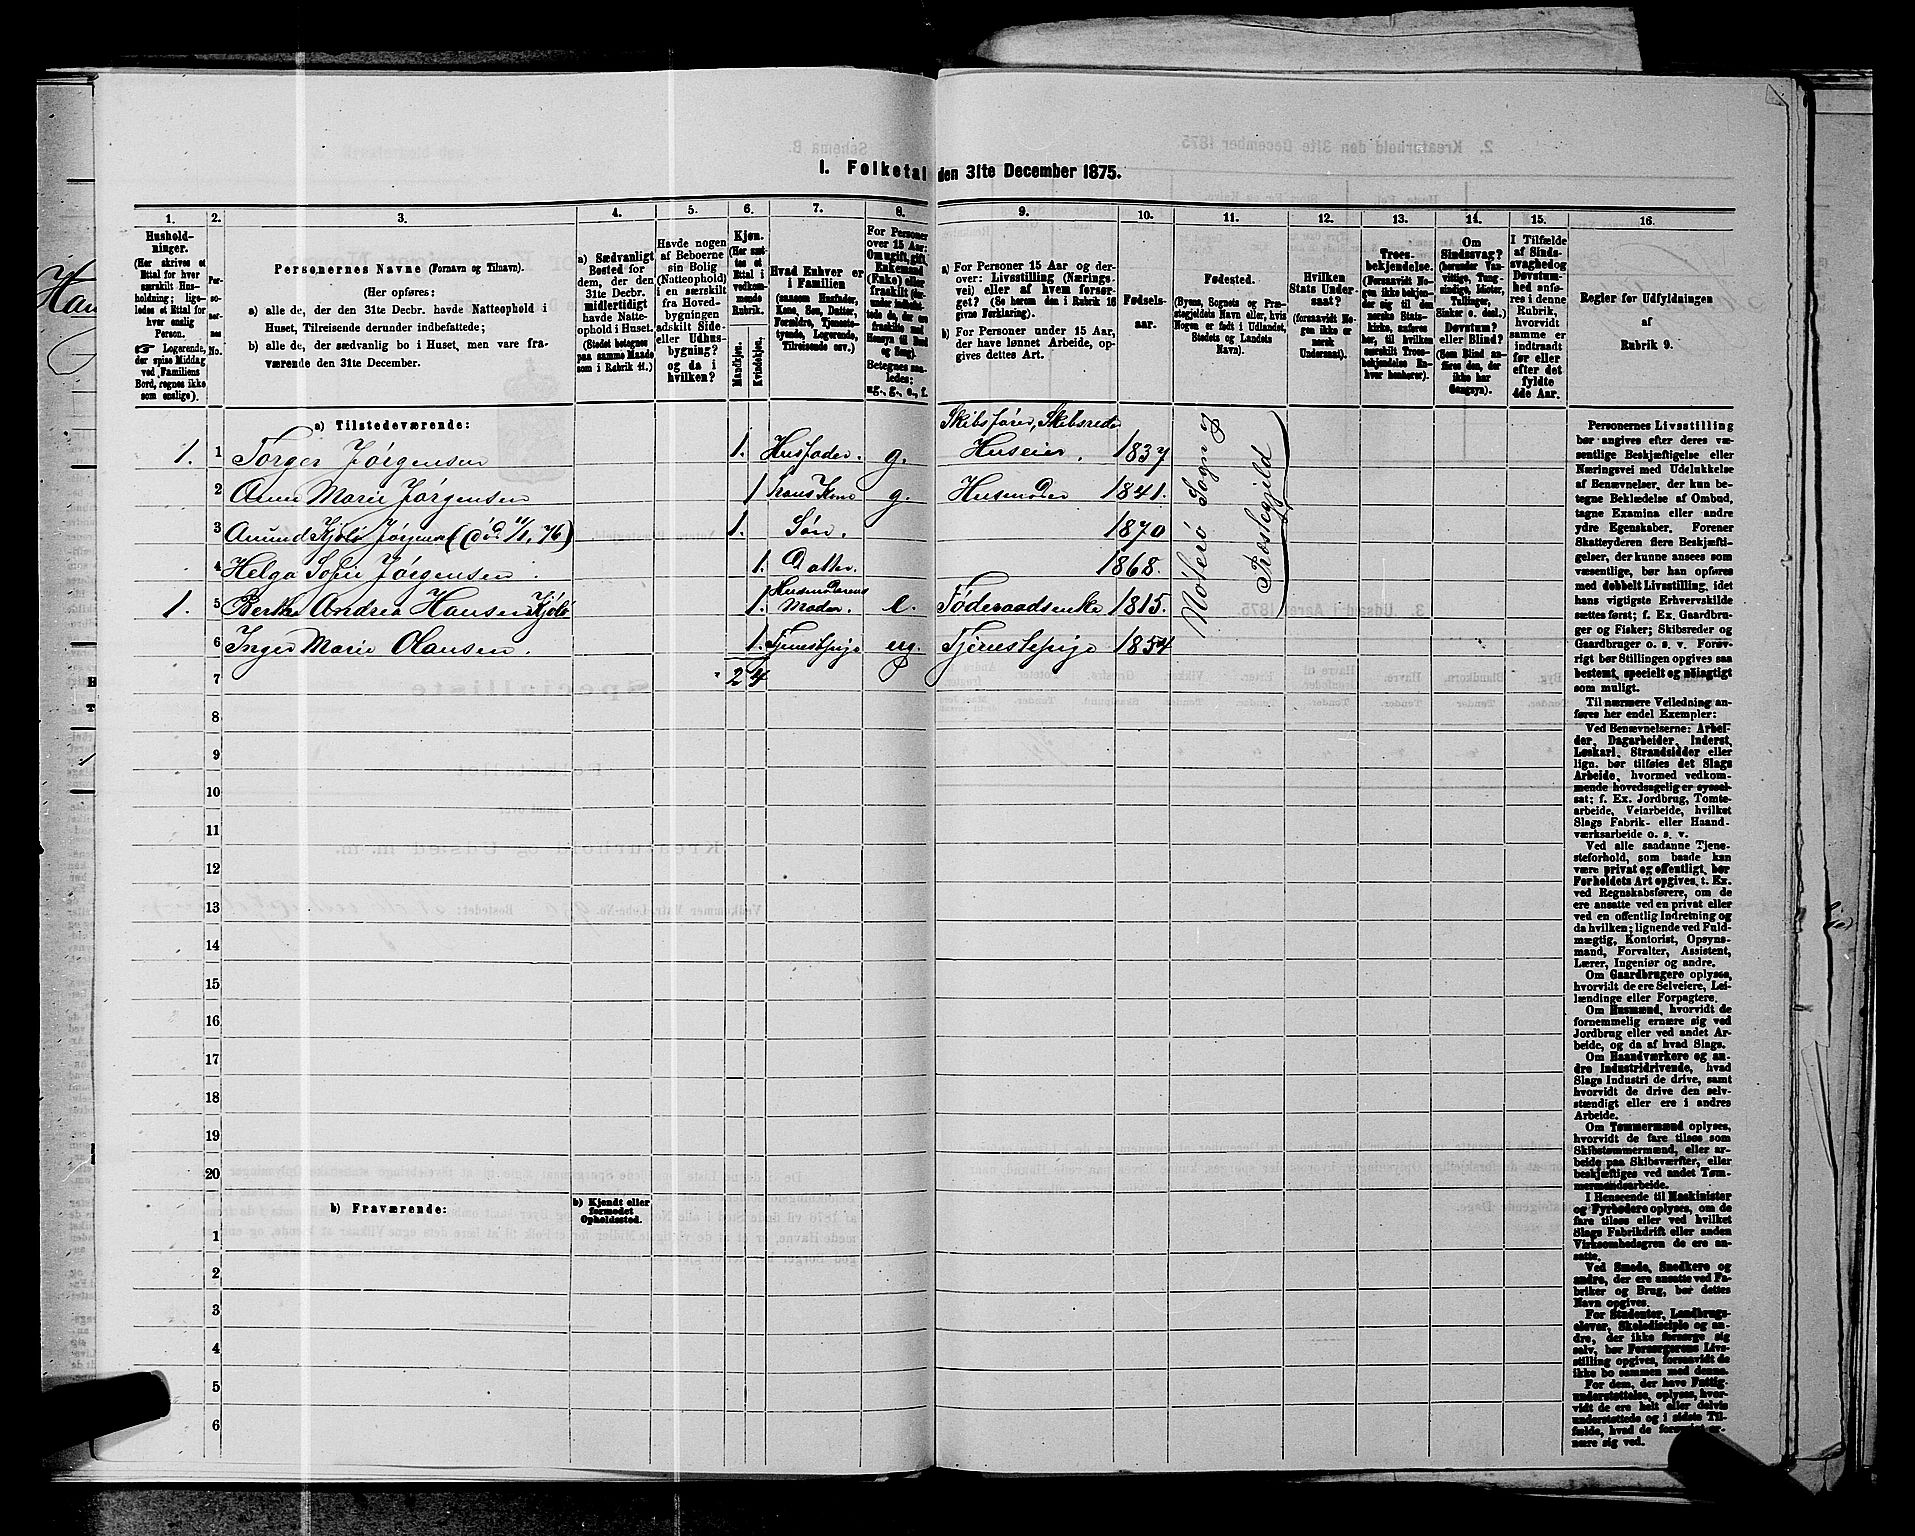 I. Folketal den 31te December 1875.
1. 2. 3. 4. 5. 6. 7. 8. 9. 10. 11. 12. 13. 14. 15. 16.
Hushold-
ninger.
(Her skrives et
Ettal for hver
særskilt Hus-
holdning; lige-
ledes et Ettal for
hver enslig
Person.
☞ Logerende,
der spise Middag
ved Familiens
Bord, regnes ikke
som enslige).
Per-
so-
ner-
nes
No.
Personernes Navne (Fornavn og Tilnavn).
(Her opføres:
a) alle de, der den 31te Decbr. havde Natteophold i
Huset, Tilreisende derunder indbefattede;
b) alle de, der sædvanlig bo i Huset, men vare fra-
værende den 31te December.
a) Sædvanligt
Bosted for
dem, der den
31te Decbr.
midlertidigt
havde Natte-
ophold i Huset.
(Stedet betegnes
paa samme Maade
som i Rubrik 11.)
Havde nogen
af Beboerne
sin Bolig
(Natteophold)
i en særskilt
fra Hoved-
bygningen
adskilt Side-
eller Udhus-
bygning?
og da i
hvilken?
Kjøn.
(Her sæt-
tes et
Ettal i
vedkom-
mende
Rubrik.
Mandkjøn.
Kvindekjøn.
Hvad Enhver er
i Familien
(saasom Husfader,
Kone, Søn, Datter,
Forældre, Tjeneste-
tyende, Logerende,
Tilreisende osv.)
For Personer
over 15 Aar:
Om ugift, gift,
Enkemand
(Enke) eller
fraskilt
Betegnes saa-
ledes:
ug., g., e., f.
a) For Personer 15 Aar og der-
over: Livsstilling (Nærings-
vei) eller af hvem forsør-
get? (Se herom den i Rubrik 16
givne Forklaring).
b) For Personer under 15 Aar,
der have lønnet Arbeide, op-
gives dettes Art.
Fødsels-
aar.
Fødested.
(Byens, Sognets og Præ-
stegjeldets Navn eller, hvis
Nogen er født i Udlandet,
Stedets og Landets
Navn).
Hvilken
Stats Under-
saat?
(forsaavidt No-
gen ikke er
norsk
Undersaat).
Troes-
bekjendelse.
(Forsaavidt No-
gen ikke bekjen-
der sig til den
norske Stats-
kirke, anføres
her, til hvilken
særskilt Troes-
bekjendelse En-
hver henhører).
Om
Sindssvag?
(herunder Van-
vittige, Tung-
sindige, Idioter,
Tullinger,
Sinker o. desl.)
Døvstum?
eller Blind?
(Som Blind an-
føres den, der
ikke har
Gangsyn).
I Tilfælde
af Sinds-
svaghed og
Døvstum-
hed anfø-
res i denne
Rubrik,
hvorvidt
samme er
indtraadt
før eller
efter det
fyldte
4de Aar.
Regler for Udfyldningen
af
Rubrik 9.
a) Tilstedeværende:
Skibsfører, Skibsreder
1. 1 Torger Jørgensen 1. Husfader. g. Huseier. 1837
2 Anne Marie Jørgensen 1 Hans Kone g. Husmoder 1841.
3 Amund Kjølø Jørgensen (død 4/1, 76) 1. Søn. 1870
4 Helga Sofie Jørgensen. 1. Datter. 1868.
1. 5 Berthe Andrea Hansen Kjølø 1. Husmoderens Moder. e. Føderaadsenke 1815.
6 Inger Marie Olausen. 1. Tjenestepige ug. Tjenestepige 1854
7 2 4
Sogn
Præstegjeld
8
9
10
11
12
13
14
15
16
17
18
19
20
b) Fraværende:
b) Kjendt eller
formodet
Opholdssted.
1
2
3
4
5
6
Personernes Livsstilling
bør angives efter deres væ-
sentlige Beskjæftigelse eller
Næringsvei med Udelukkelse
af Benævnelser, der kun be-
tegne Beklædelse af Ombud,
tagne Examina eller andre
ydre Egenskaber. Forener
Skatteyderen flere Beskjæfti-
gelser, der kunne ansees som
væsentlige, bør han opføres
med dobbelt Livsstilling, idet
hans vigtigste Erhvervskilde
sættes først; f. Ex. Gaardbru-
ger og Fisker; Skibsreder og
Gaardbruger o. s. v. Forøv-
rigt bør Stillingen opgives saa
bestemt, specielt og nøiagtigt
som muligt.
Til nærmere Veiledning an-
føres her endel Exempler:
Ved Benævnelserne: Arbei-
der, Dagarbeider, Inderst,
Løskarl, Strandsidder eller
lign. bør tilføies det Slags
Arbeide, hvormed vedkom-
mende hovedsagelig er syssel-
sat; f. Ex. Jordbrug, Tomte-
arbeide, Veiarbeide, hvilket
Slags Fabrik- eller Haand-
værksarbeide o. s. v.
Ved alle saadanne Tjene-
steforhold, som baade kan
være privat og offentligt, bør
Forholdets Art opgives, t. Ex.
ved Regnskabsførere, om de
ere ansatte ved en privat eller
ved en offentlig Indretning og
da hvilken; lignende ved Fuld-
mægtig, Kontorist, Opsyns-
mand, Forvalter, Assistent,
Lærer, Ingeniør og andre.
Om Gaardbrugere oplyses,
hvorvidt de ere Selveiere, Lei-
lændinge eller Forpagtere.
Om Husmænd, hvorvidt de
fornemmelig ernære sig ved
Jordbrug eller ved andet Ar-
beide, og da af hvad Slags.
Om Haandværkere og an-
dre Industridrivende, hvad
Slags Industri de drive, samt
hvorvidt de drive den selv-
stændigt eller ere i andres
Arbeide.
Om Tømmermænd oplyses,
hvorvidt de fare tilsøs som
Skibstømmermænd, eller ar-
beide paa Skibsværfter, eller
beskjæftiges ved andet Tøm-
mermandsarbeide.
I Henseende til Maskinister
og Fyrbødere oplyses, om de
fare tilsøs eller ved hvilket
Slags Fabrikdrift eller anden
Virksomhedsgren de ere an-
satte.
Ved Smede, Snedkere og
andre, der ere ansatte ved Fa-
briker og Brug, bør dettes
Navn opgives.
For Studenter, Landbrugs-
elever, Skoledisciple og an-
dre, der ikke forsørge sig
selv, bør Forsørgerens Livs-
stilling opgives, forsaavidt de
ikke bo sammen med denne.
For dem, der have Fattig-
understøttelse, oplyses, hvor-
vidt de ere helt eller delvis
understøttede og i sidste Til-
fælde, hvad de forøvrigt er-
nære sig ved.